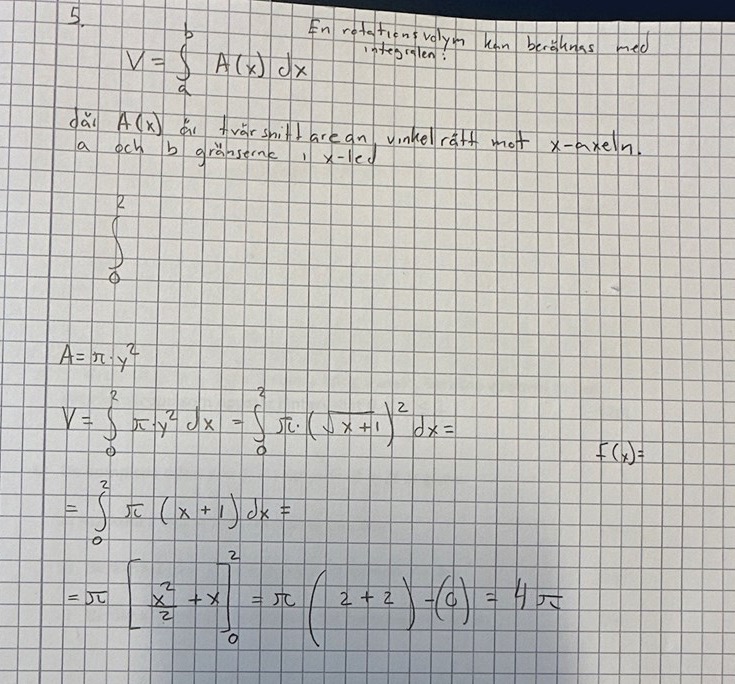 5.
En rotationsvolym kan beräknas med
integralen:
V = ∫_a^b A(x) dx
där A(x) är tvärsnittarean, vinkelrätt mot x-axeln.
a och b gränserna i x-led
∫_0^2
A = π·y²
V = ∫_0^2 π·y² dx = ∫_0^2 π·(√(x+1))² dx =
f(x)=
= ∫_0^2 π (x+1) dx =
= π [x²/2 + x]_0^2 = π (2+2) - (0) = 4π